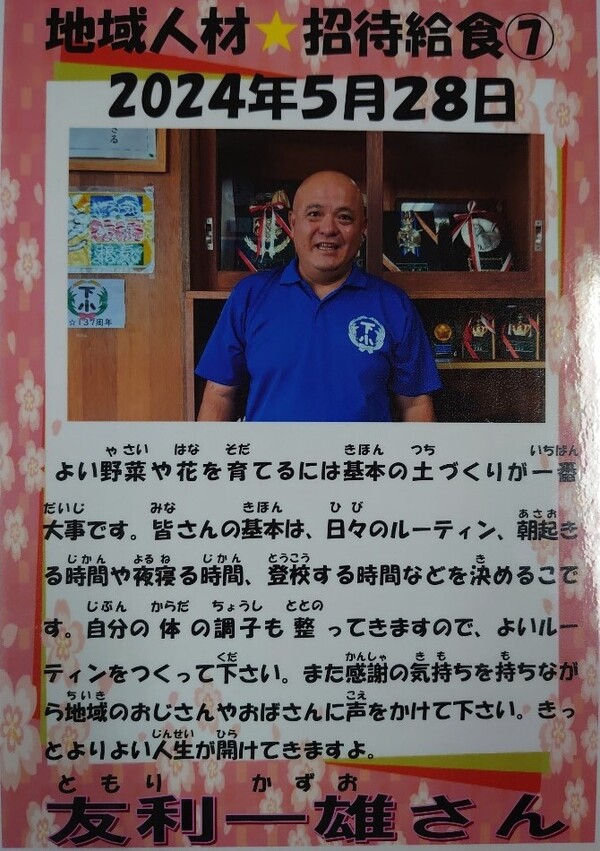 地域人材★招待給食⑦
2024年5月28日
さる
下小
☆137周年
やさい はな そだ きほん つち いちばん
よい野菜や花を育てるには基本の土づくりが一番
だいじ みな きほん ひび あさお
大事です。皆さんの基本は、日々のルーティン、朝起き
じかん よるね じかん とうこう き
る時間や夜寝る時間、登校する時間などを決めるこで
じぶん からだ ちょうし ととの
す。自分の体の調子も整ってきますので、よいルー
くだ かんしゃ きも も
ティンをつくって下さい。また感謝の気持ちを持ちなが
ちいき こえ
ら地域のおじさんやおばさんに声をかけて下さい。きっ
じんせい ひら
とよりよい人生が開けてきますよ。
ともり かずお
友利一雄さん